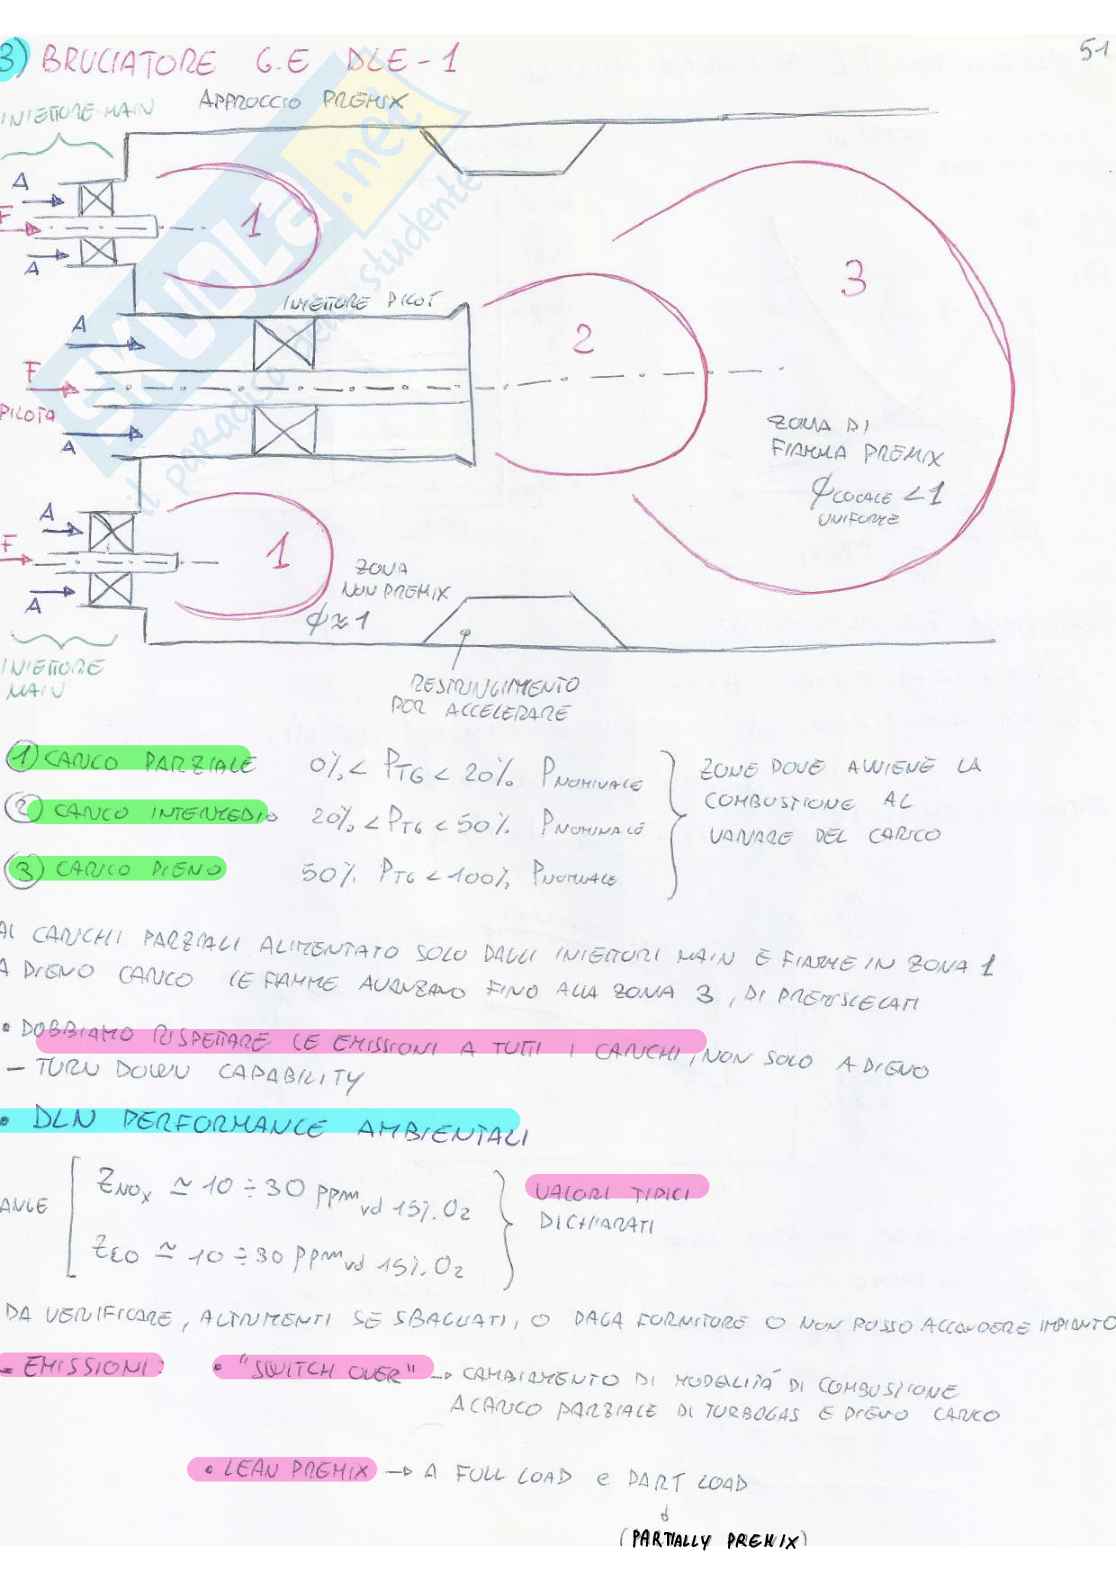 3) BRUCIATORE G.E DLE-1
51
INIETTORE MAIN
APPROCCIO PREMIX
A
F
A
1
INIETTORE PILOT
A
F
PILOTA
A
2
3
ZONA DI
FIAMMA PREMIX
ϕLOCALE < 1
UNIFORME
A
F
A
1
ZONA
NON PREMIX
ϕ ≈ 1
INIETTORE
MAIN
RESTRINGIMENTO
PER ACCELERARE
SKUOLA.net
il paradiso dello studente
1) CARICO PARZIALE 0% < PTG < 20% PNOMINALE
2) CARICO INTERMEDIO 20% < PTG < 50% PNOMINALE
3) CARICO PIENO 50% PTG < 100% PNOMINALE
ZONE DOVE AVVIENE LA
COMBUSTIONE AL
VARIARE DEL CARICO
AI CARICHI PARZIALI ALIMENTATO SOLO DAGLI INIETTORI MAIN E FIAMME IN ZONA 1
A PIENO CARICO LE FIAMME AVANZANO FINO ALLA ZONA 3, DI PREMISCELATI
• DOBBIAMO RISPETTARE LE EMISSIONI A TUTTI I CARICHI, NON SOLO A PIENO
- TURN DOWN CAPABILITY
• DLN PERFORMANCE AMBIENTALI
ANGE
ZNOx ≃ 10 ÷ 30 ppmvd 15% O2
ZCO ≃ 10 ÷ 30 ppmvd 15% O2
VALORI TIPICI
DICHIARATI
DA VERIFICARE, ALTRIMENTI SE SBAGLIATI, O PAGA FORNITORE O NON POSSO ACCENDERE IMPIANTO
- EMISSIONI: • "SWITCH OVER" → CAMBIAMENTO DI MODALITÀ DI COMBUSTIONE
A CARICO PARZIALE DI TURBOGAS E PIENO CARICO
• LEAN PREMIX → A FULL LOAD e PART LOAD
↓
(PARTIALLY PREMIX)